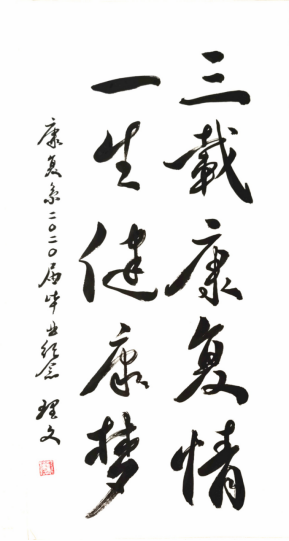 三载康复情
一生健康梦
康复系二〇二〇届毕业纪念 理文